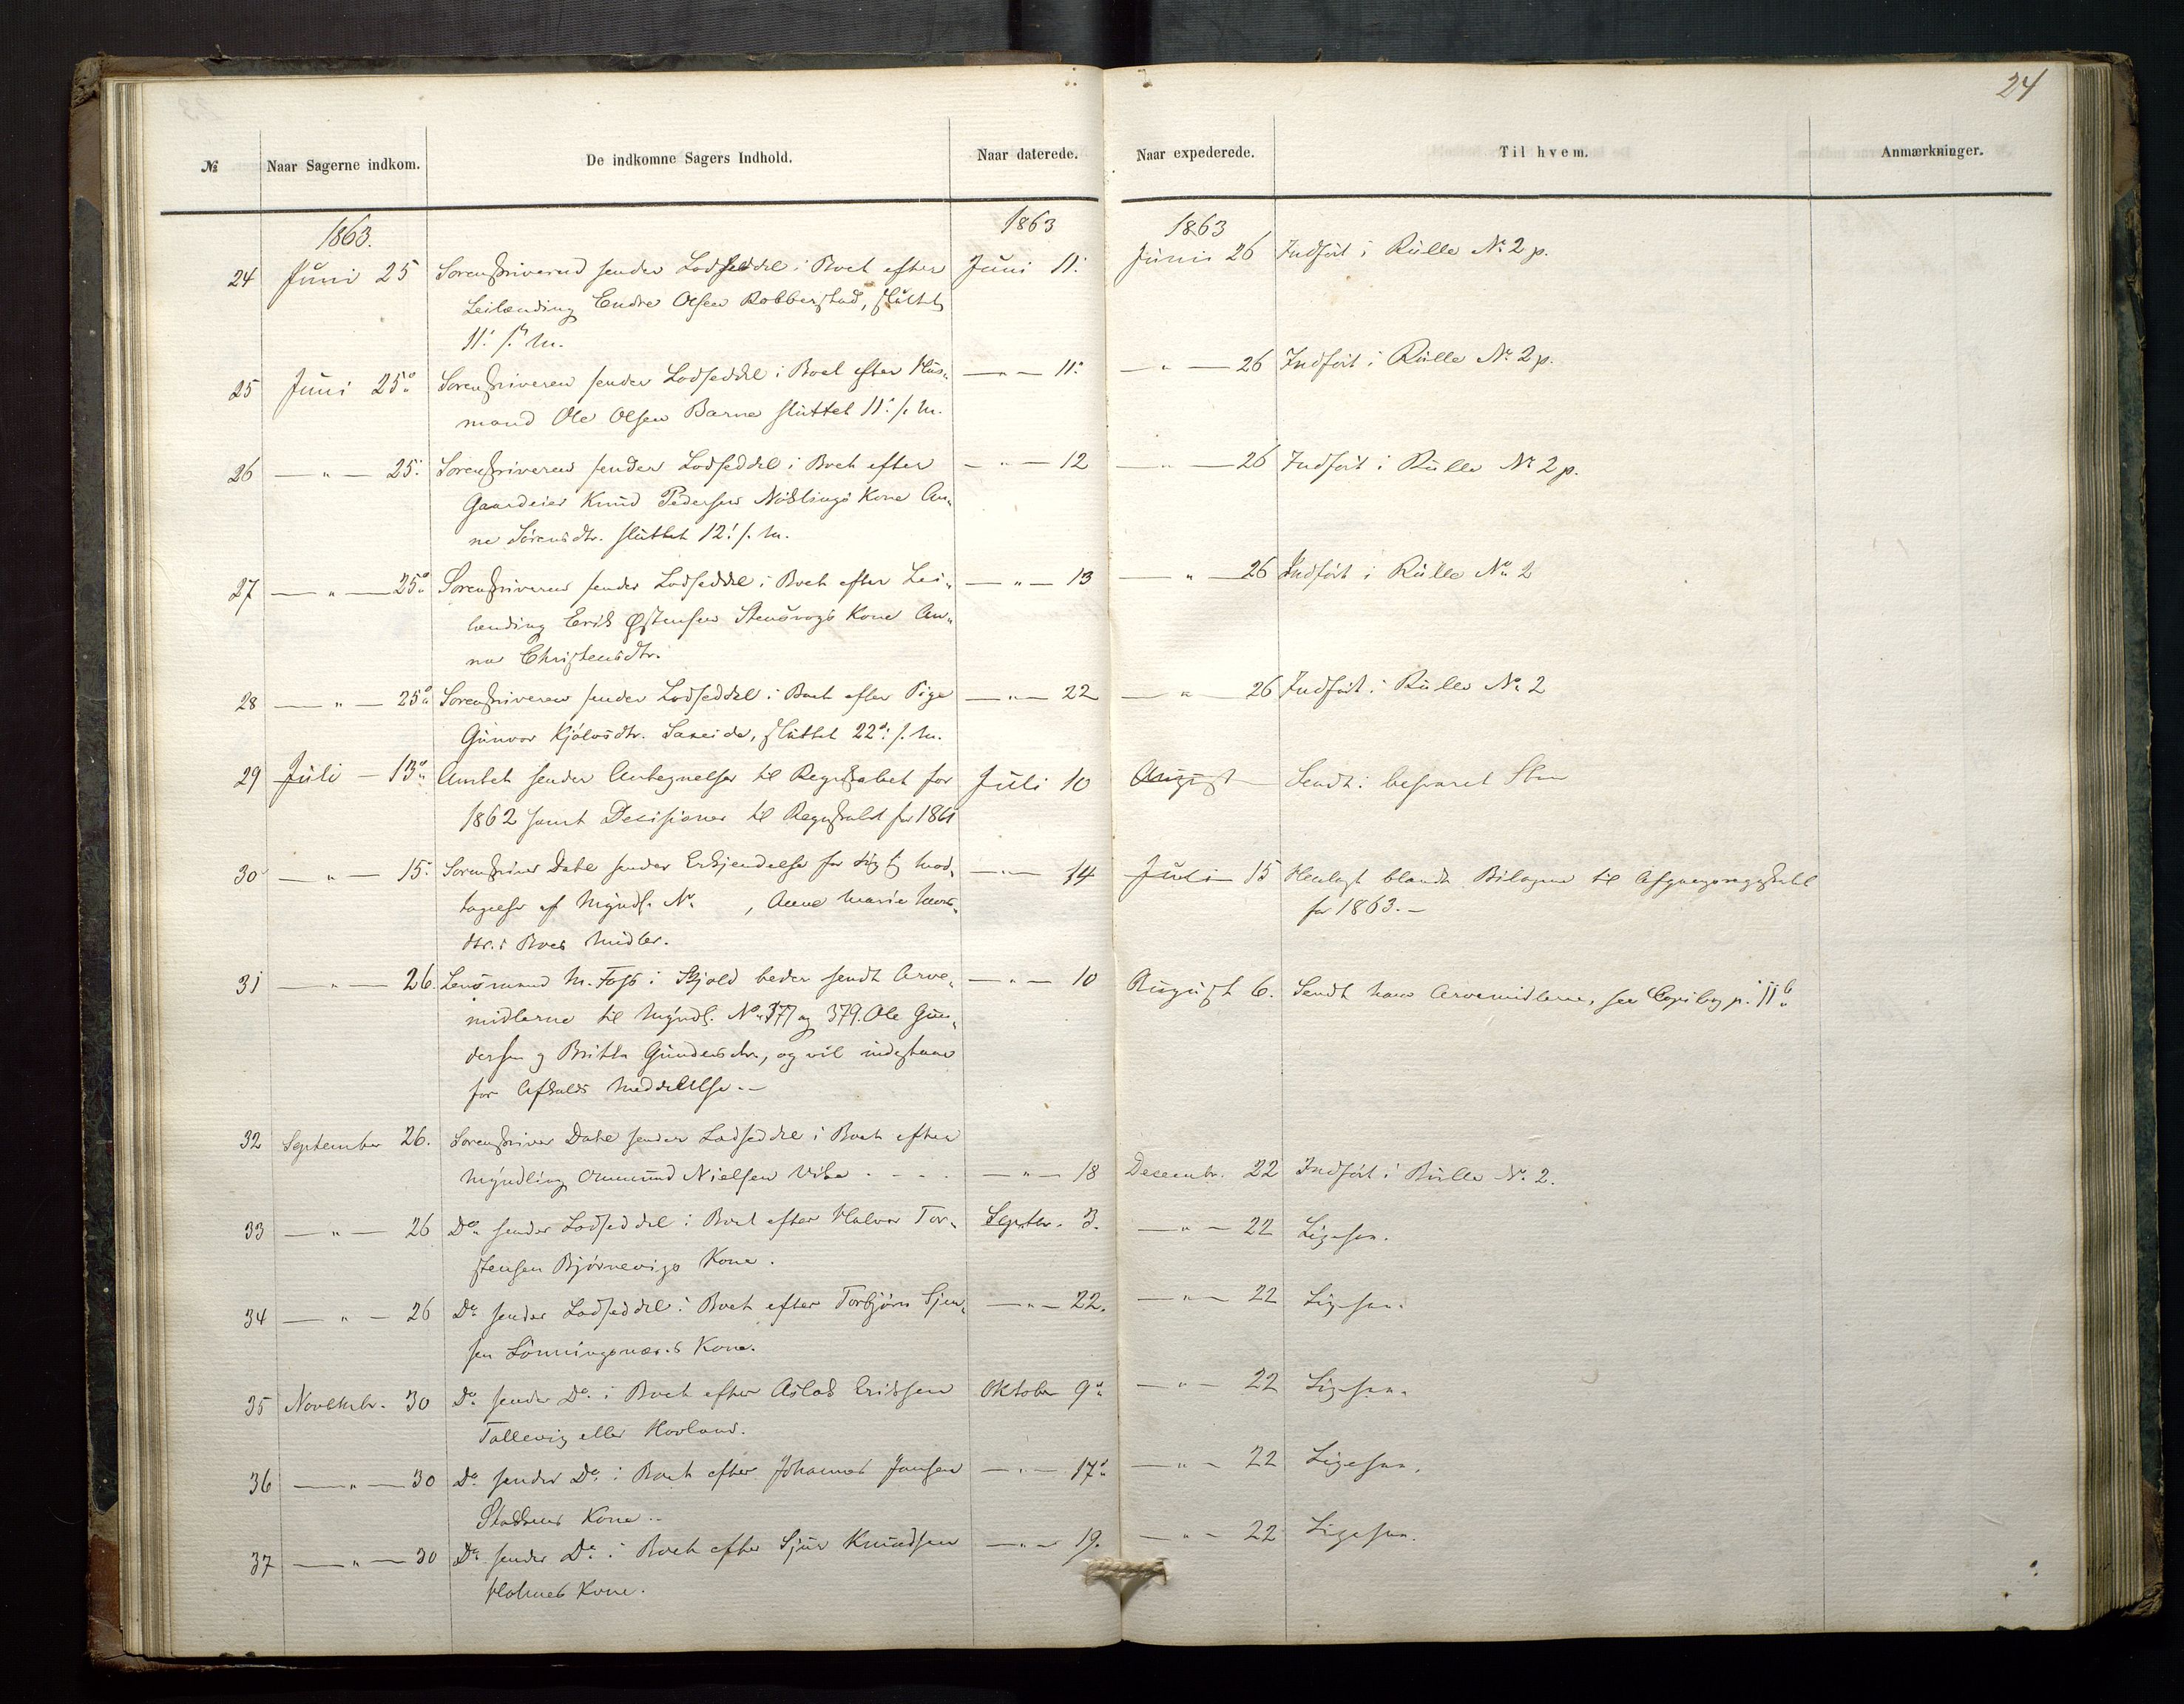 24
№ Naar Sagerne indkom. De indkomne Sagers Indhold. Naar daterede. Naar expederede. Til hvem. Anmærkninger.
1863. 1863 1863
24 Juni 25 Sorenskriveren sender Lodseddel i Boet efter Juni 11. Junii 26 Indført i Rulle No 2 p.
Leilænding Endre Olsen Robberstad, sluttet
11. s. M.
25 Juni 25de Sorenskriveren sender Lodseddel i Boet efter Hus- — " — 11. — " — 26 Indført i Rulle No 2 p.
mand Ole Olsen Barne sluttet 11. s. M.
26 — " — 25. Sorenskriveren sender Lodseddel i Boet efter — " — 12 — " — 26 Indført i Rulle No 2 p.
Gaardeier Knud Pedersen Nøklings Kone An-
ne Sørensdtr. sluttet 12. s. M.
27 — " — 25de Sorenskriveren sender Lodseddel i Boet efter Lei- — " — 13 — " — 26 Indført i Rulle No 2
lænding Erik Østensen Stensvogs Kone An-
na Christensdtr.
28 — " — 25de Sorenskriveren sender Lodseddel i Boet efter Pige — " — 22 — " — 26 Indført i Rulle No 2
Gunvor Kjølvsdtr. Saxeide, sluttet 22de s. M.
29 Juli — 13de Amtet sender Antegnelser til Regnskabet for Juli 10 August Sendt i besvaret
1862 samt Decisioner til Regnskabet for 1861
30 — " — 15. Sorenskriver Dahl sender Erkjendelse for sig Mod- — " — 14 Juli 15 Henlagt blandt Bilagene til Afgangsregnskabet
tagelse af Myndl. No , Anne Marie for 1863. —
dtr. i Boes Midler.
31 — " — 26. Lensmand M. Foss i Skjold beder sendt Arve- — " — 10 August 6. Sendt ham Arvemidlerne, see Copibog p. 11b
midlerne til Myndl. No 377 og 379. Ole Gun-
dersen og Britha Gundersdtr., og vil indestaae
for Afkalds Meddelelse. —
32 September 26. Sorenskriver Dahl sender Lodseddel i Boet efter
Myndling Ommund Nielsen Vike — " — 18 Decembr. 22 Indført i Rulle No 2.
33 — " — 26 Do sender Lodseddel i Boet efter Halvor Tor- Septbr. 3. — " — 22 Ligesaa.
stensen Bjørnevigs Kone.
34 — " — 26 Do sender Lodseddel i Boet efter Torbjørn Sjur- — " — 22. — " — 22 Ligesaa.
sen Lønningsnæs's Kone.
35 Novembr. 30 Do sender Do i Boet efter Aslak Eriksen Oktober 9de — " — 22 Ligesaa.
Tallevig eller Hovland.
36 — " — 30 Do sender Do i Boet efter Johannes Jansen — " — 17de — " — 22 Ligesaa.
Kone.
37 — " — 30 Do sender Do i Boet efter Sjur Knudsen — " — 19. — " — 22 Ligesaa.
Holmes Kone.